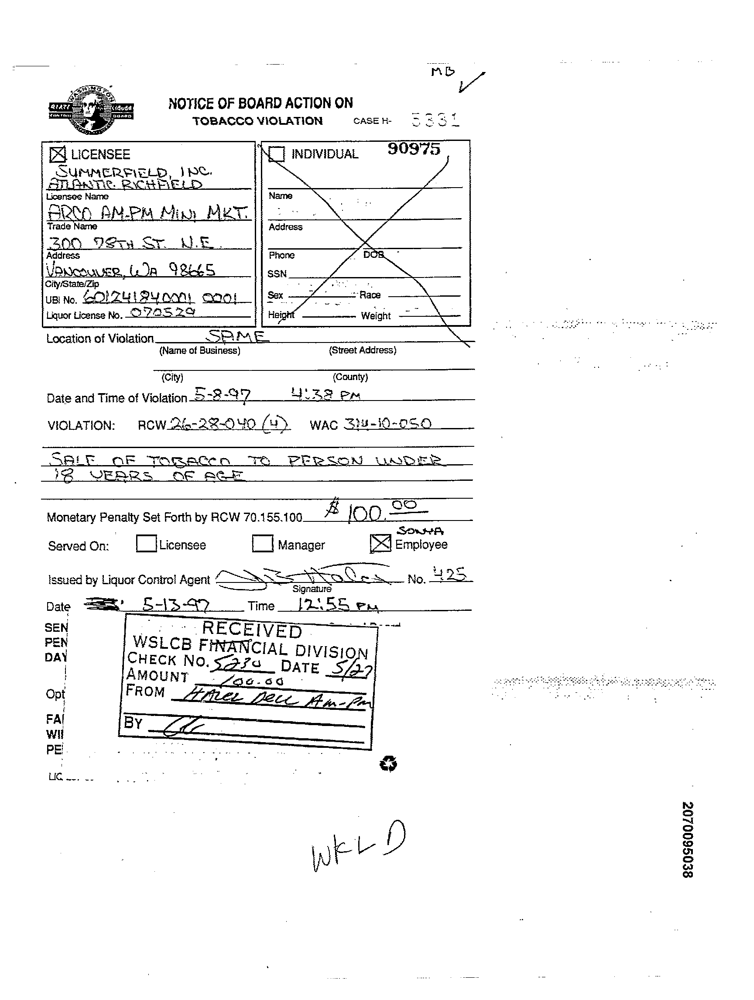 MB
WASHINGTON
STATE LIQUOR
CONTROL BOARD
NOTICE OF BOARD ACTION ON
TOBACCO VIOLATION CASE H- 5331
LICENSEE
SUMMERFIELD, INC.
ATLANTIC RICHFIELD
Licensee Name
ARCO AM-PM MINI MKT.
Trade Name
300 78TH ST. N.E.
Address
VANCOUVER, WA 98665
City/State/Zip
UBI No. 601241840001 0001
Liquor License No. 070529
INDIVIDUAL 90975
Name
Address
Phone DOB
SSN
Sex Race
Height Weight
Location of Violation SAME
(Name of Business) (Street Address)
(City) (County)
Date and Time of Violation 5-8-97 4:38 PM
VIOLATION: RCW 26-28-040 (4) WAC 314-10-050
SALE OF TOBACCO TO PERSON UNDER
18 YEARS OF AGE
Monetary Penalty Set Forth by RCW 70.155.100 $100.00
SONYA
Served On: Licensee Manager Employee
Issued by Liquor Control Agent No. 425
Signature
Date 5-13-97 Time 12:55 PM
SEN
PEN
DAY
Opt
FAI
WII
PE
LIC
RECEIVED
WSLCB FINANCIAL DIVISION
CHECK NO. 5230 DATE 5/27
AMOUNT 100.00
FROM Hazel Dell Am-Pm
BY
WKLD
2070095038